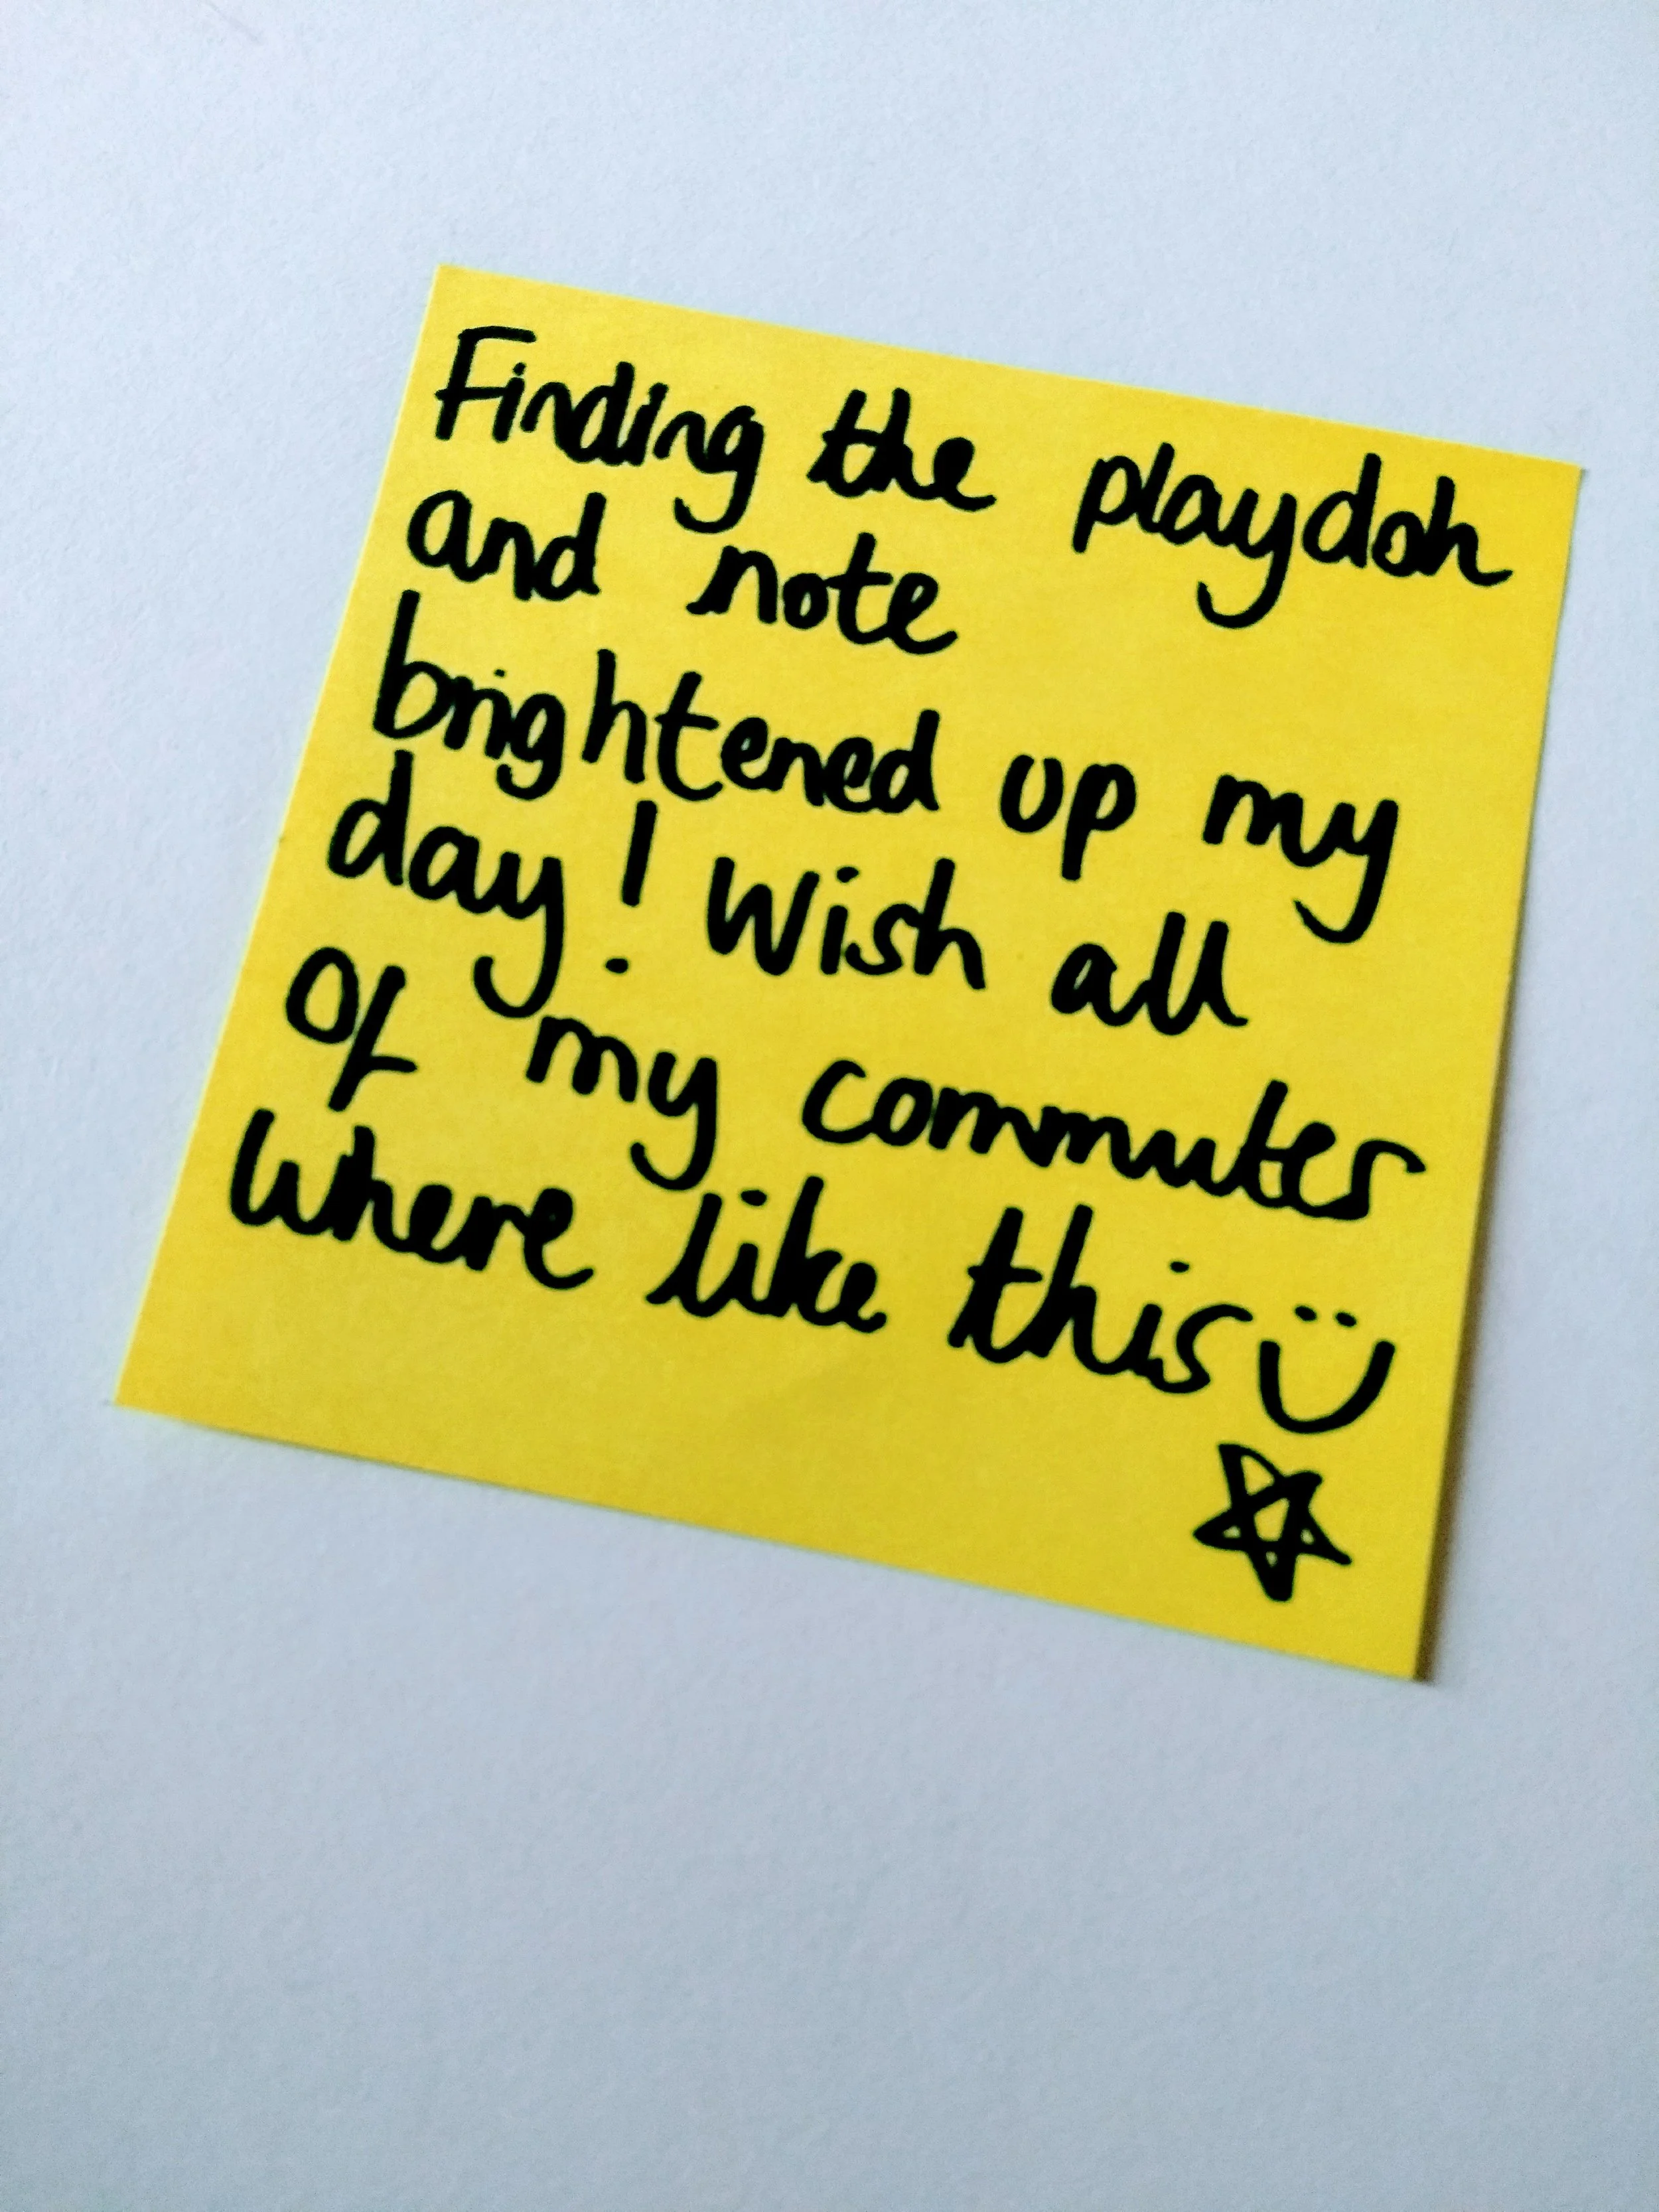 Finding the playdoh
and note
brightened up my
day! Wish all
of my commutes
where like this